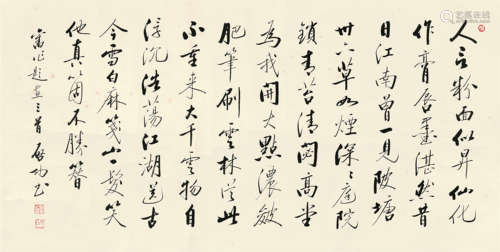 人言粉面似昇仙化
作膏唇墨湛然昔
日江南曾一見陂塘
卅六草如煙深深庭院
鎖青苔清閟高堂
為我開大點濃皴
肥筆刷雲林從此
不重來大千雲物自
浮沉浩蕩江湖送古
今雪白麻箋山一髮笑
他真箇不勝簪
舊作題畫三首 啟功書